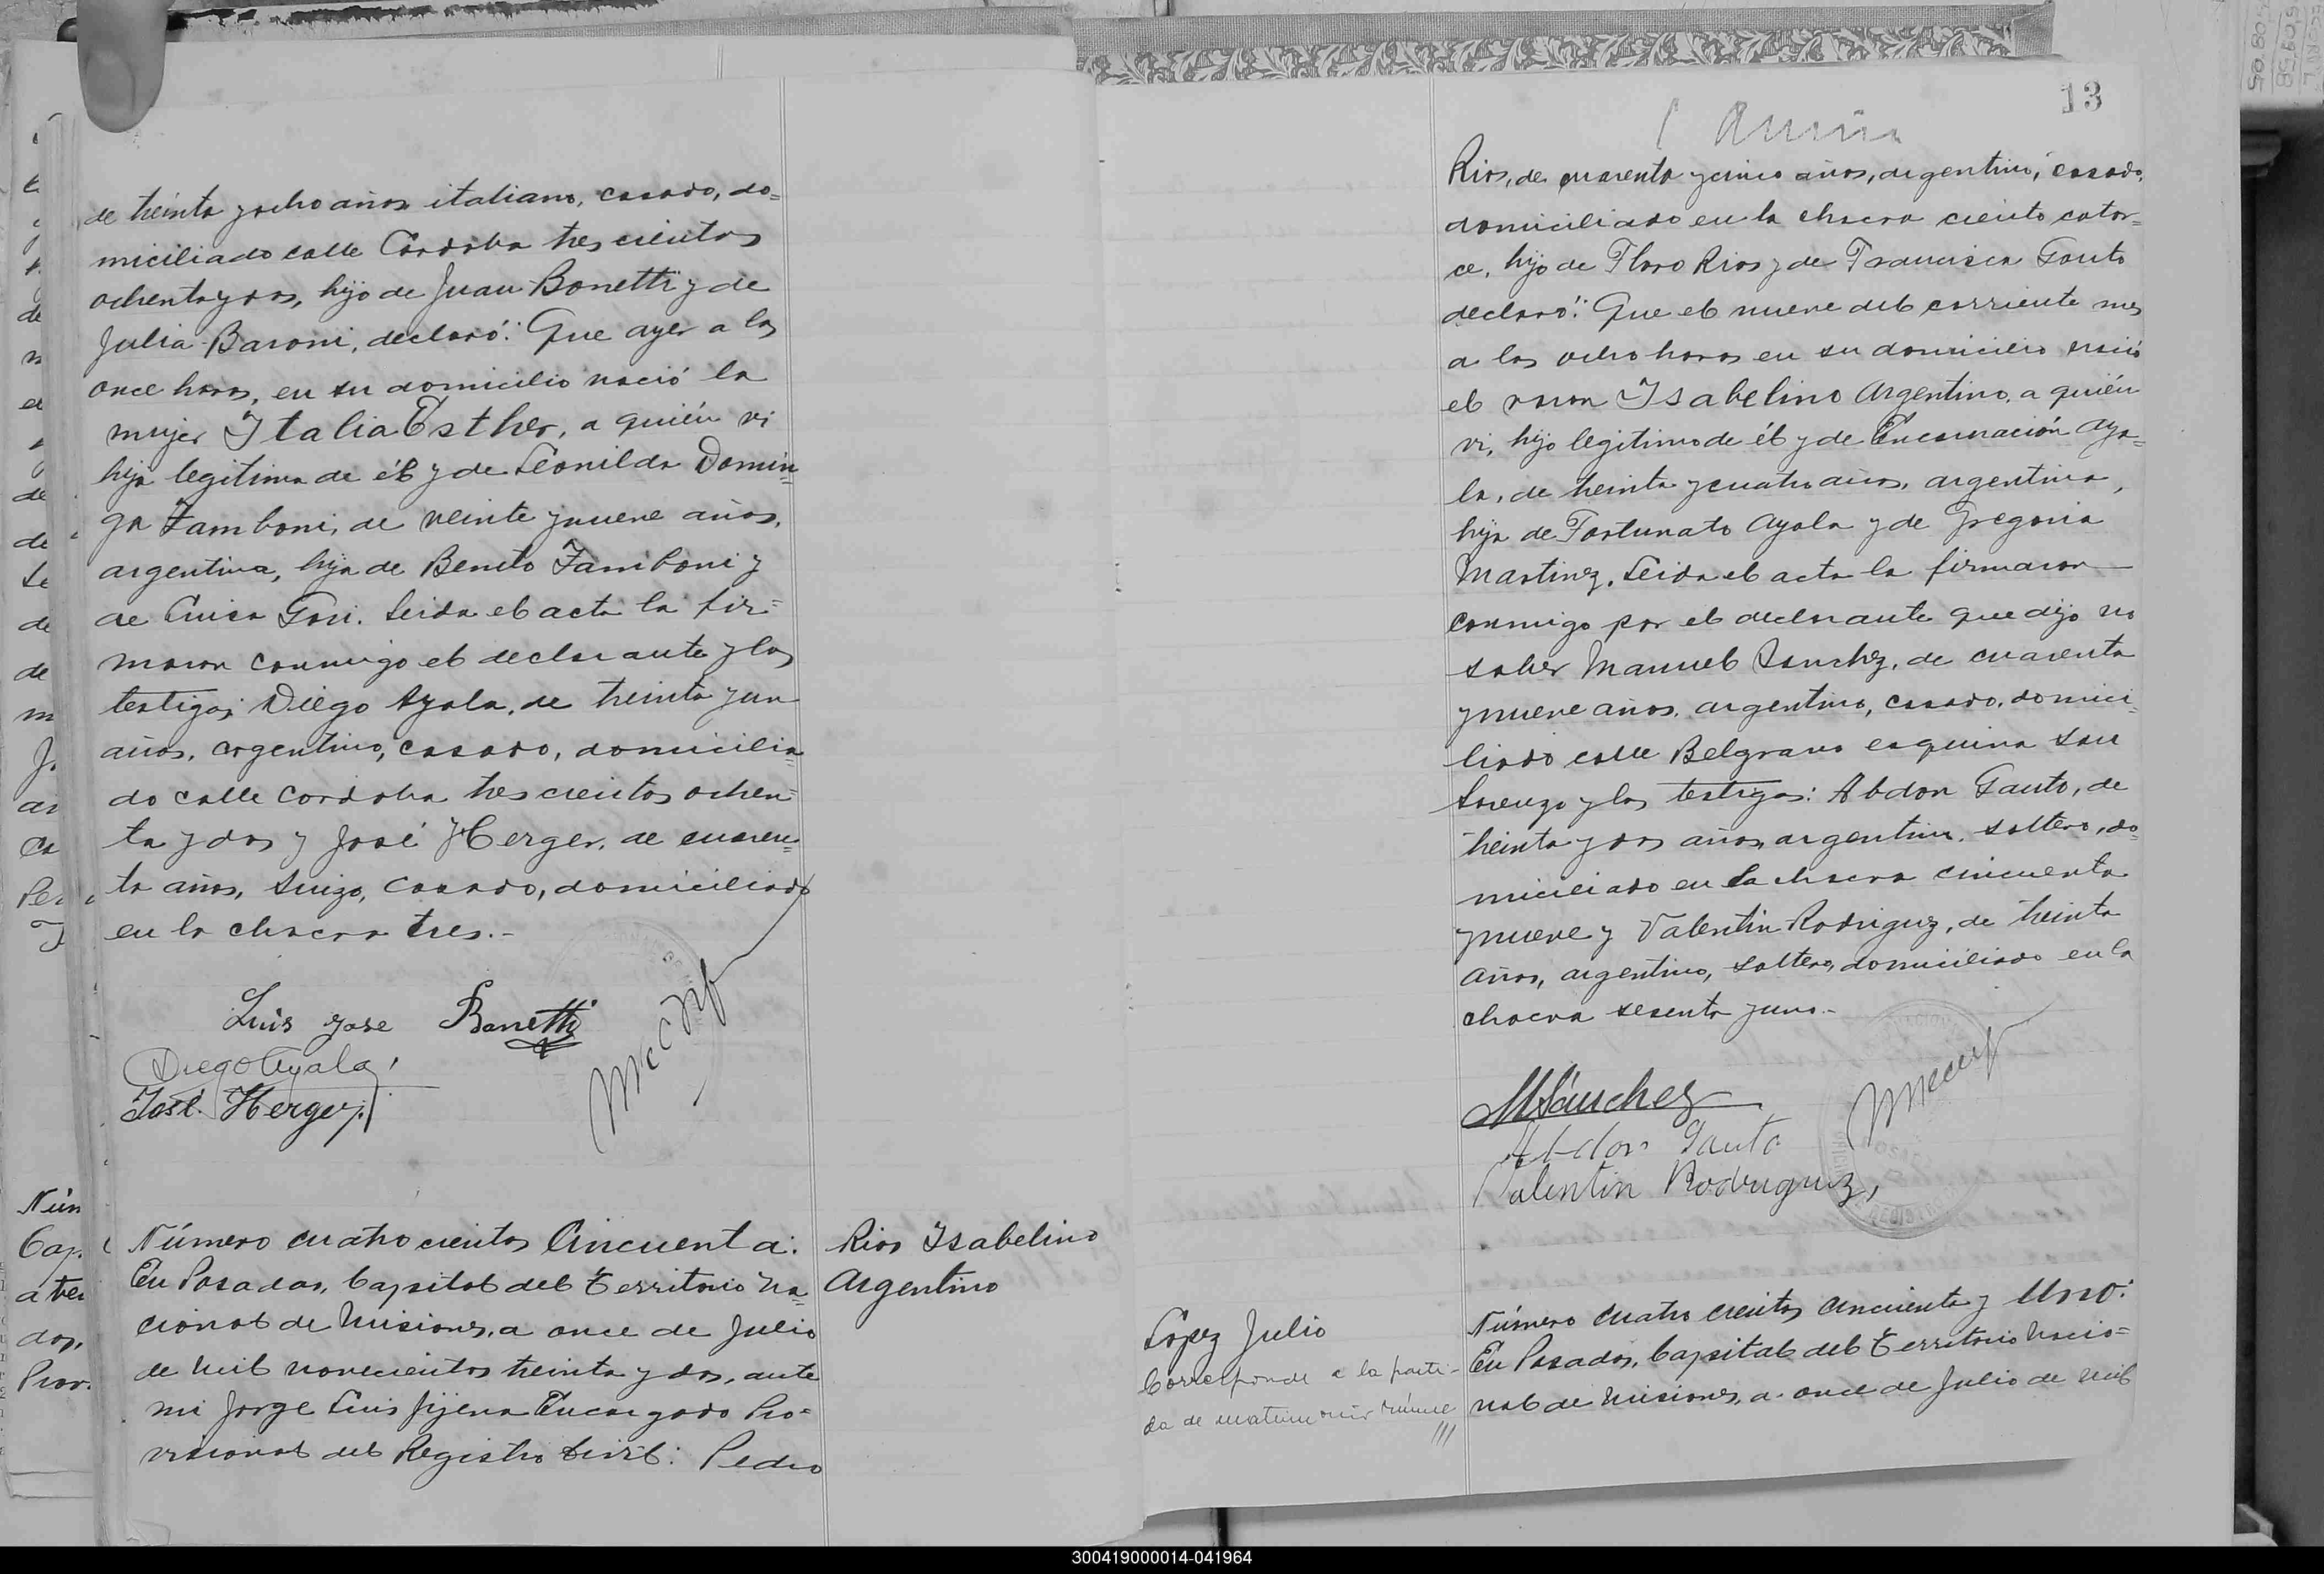 de treinta y ocho años, italiano, casado, do=
miciliado calle Córdoba trescientos
ochenta y dos, hijo de Juan Bonetti y de
Julia Baroni, declaró: Que ayer a las
once horas, en su domicilio nació la
mujer Italia Esther, a quién vi
hija legitima de él y de Leonilda Domin=
ga Zamboni, de veinte y nueve años,
argentina, hija de Benito Zamboni y
de Goñi. Leida el acta la fir=
maron conmigo el declarante y los
testigos Diego Ayala, de treinta y un
años, argentino, casado, domicilia
do calle Cordoba trescientos ochen=
ta y dos y José Herger, de cuaren=
ta años, suizo, casado, domiciliado
en la chacra tres.-
Luis Jose Bonetti
Diego Ayala
José Herger
Número cuatrocientos Cincuenta:
En Posadas, Capital del Territorio Na=
cional de Misiones, a once de Julio
de mil novecientos treinta y dos, ante
mi Jorge Luis Jijena Encargado Pro=
visional del Registro Civil: Pedro
Rios Isabelino
Argentino
13
Rios, de cuarenta y cinco años, argentino, casado,
domiciliado en la chacra ciento cator=
ce, hijo de Floro Rios y de Francisca Gauto
declaró: Que el nueve del corriente mes
a las ocho horas en su domicilio nació
el varon Isabelino Argentino, a quién
vi, hijo legitimo de él y de Encarnación Aya=
la, de treinta y cuatro años, argentina,
hija de Fortunato Ayala y de Gregoria
Martinez. Leida el acta la firmaron
conmigo por el declarante que dijo no
saber Manuel Sanchez, de cuarenta
y nueve años, argentino, casado, domici=
liado calle Belgrano esquina San
Lorenzo y los testigos: Abdon Gauto, de
treinta y dos años, argentino, soltero, do=
miciliado en la chacra cincuenta
y nueve y Valentin Rodriguez, de treinta
años, argentino, soltero, domiciliado en la
chacra sesenta y uno.-
MSánchez
Abdon Gauto
Valentin Rodriguez,
López Julio
Corresponde a la parti-
da de matrimonio núme
111
Número cuatrocientos cincuenta y Uno:
En Posadas, Capital del Territorio Nacio=
nal de Misiones, a once de Julio de mil
300419000014-041964